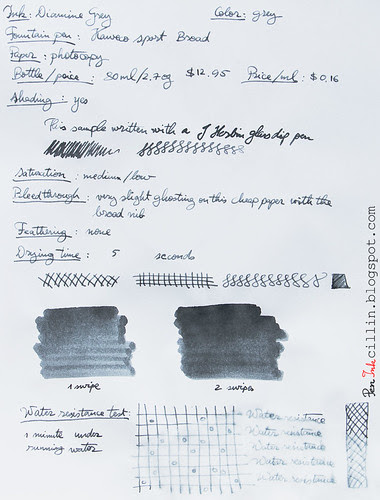 Ink: Diamine Grey Color: grey
Fountain pen: Kaweco sport Broad
Paper: photocopy
Bottle/price: 80ml/2.7oz $12.95 Price/ml: $0.16
Shading: yes
This sample written with a J Herbin glass dip pen
Saturation: medium/low
Bleedthrough: very slight ghosting on this cheap paper with the
broad nib
Feathering: none
Drying time: 5 seconds
1 swipe
2 swipes
Water resistance test:
1 minute under
running water
Water resistance
Water resistance
Water resistance
Water resistance
Water resistance
Pen Ink cillin.blogspot.com